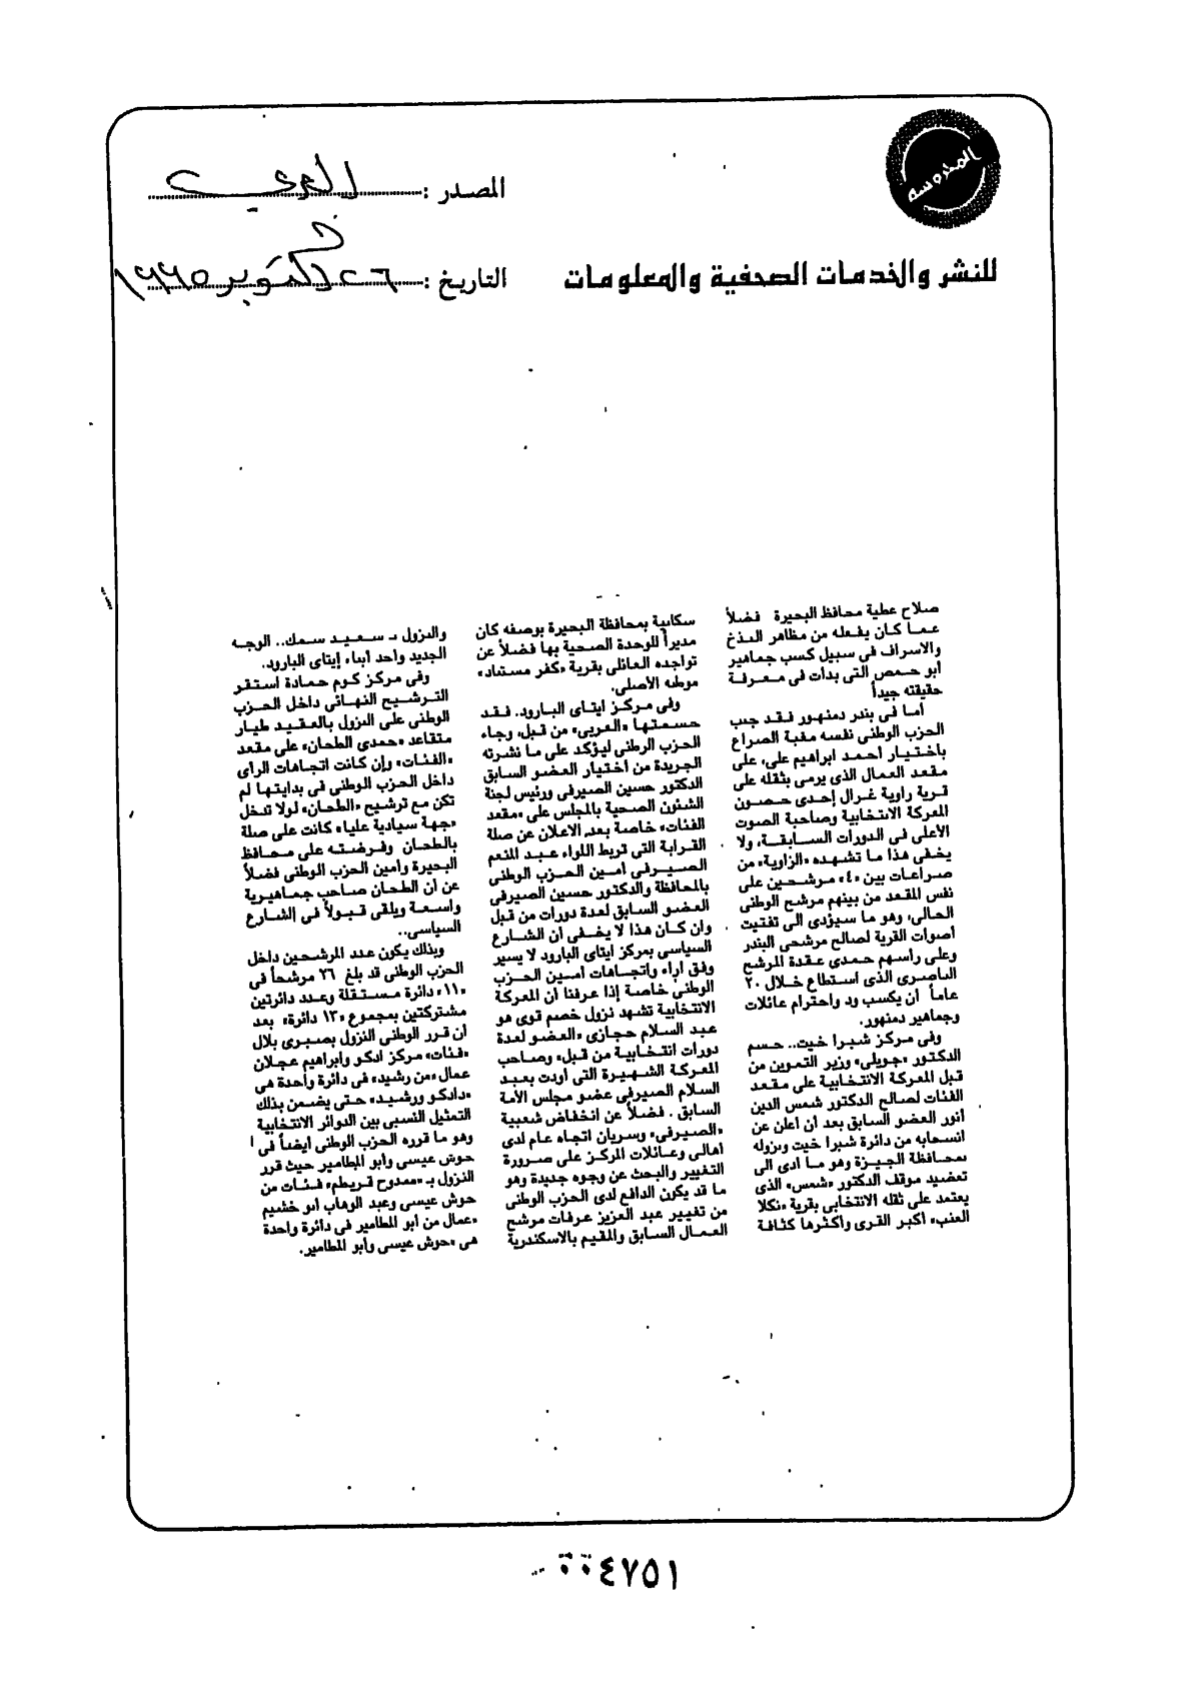 المحروسة
المصدر : العربى
للنشر والخدمات الصحفية والمعلومات
التاريخ : ٢٦ أكتوبر ١٩٩٥
صلاح عطية محافظ البحيرة فضلاً
عما كان يفعله من مظاهر البذخ
والاسراف فى سبيل كسب جماهير
أبو حمص التى بدأت فى معرفة
حقيقته جيداً
أما فى بندر دمنهور فقد جنب
الحزب الوطنى نفسه مغبة الصراع
باختيار أحمد ابراهيم على، على
مقعد العمال الذى يرمى بثقله على
قرية زاوية غزال إحدى حصون
المعركة الانتخابية وصاحبة الصوت
الأعلى فى الدورات السابقة، ولا
يخفى هذا ما تشهده «الزاوية» من
صراعات بين «٤» مرشحين على
نفس المقعد من بينهم مرشح الوطنى
الحالى، وهو ما سيؤدى الى تفتيت
أصوات القرية لصالح مرشحى البندر
وعلى رأسهم حمدى عقدة المرشح
الناصرى الذى استطاع خلال ٢٠
عاماً أن يكسب ود واحترام عائلات
وجماهير دمنهور.
وفى مركز شبرا خيت.. حسم
الدكتور «جويلى» وزير التموين من
قبل المعركة الانتخابية على مقعد
الفئات لصالح الدكتور شمس الدين
أنور العضو السابق بعد أن أعلن عن
انسحابه من دائرة شبرا خيت ونزوله
بمحافظة الجيزة وهو ما أدى الى
تعضيد موقف الدكتور «شمس» الذى
يعتمد على ثقله الانتخابى بقرية «نكلا
العنب» اكبر القرى وأكثرها كثافة
سكانية بمحافظة البحيرة بوصفه كان
مديراً للوحدة الصحية بها فضلاً عن
تواجده العائلى بقرية «كفر مستناد»
موطنه الأصلى.
وفى مركز ايتاى البارود.. فقد
حسمتها «العربى» من قبل، وجاء
الحزب الوطنى ليؤكد على ما نشرته
الجريدة من اختيار العضو السابق
الدكتور حسين الصيرفى ورئيس لجنة
الشئون الصحية بالمجلس على «مقعد
الفئات» خاصة بعد الاعلان عن صلة
القرابة التى تربط اللواء عبد المنعم
الصيرفى أمين الحزب الوطنى
بالمحافظة والدكتور حسين الصيرفى
العضو السابق لعدة دورات من قبل
وان كان هذا لا يخفى أن الشارع
السياسى بمركز ايتاى البارود لا يسير
وفق آراء واتجاهات امين الحزب
الوطنى خاصة إذا عرفنا أن المعركة
الانتخابية تشهد نزول خصم قوى هو
عبد السلام حجازى «العضو لعدة
دورات انتخابية من قبل» وصاحب
المعركة الشهيرة التى أودت بعبد
السلام الصيرفى عضو مجلس الأمة
السابق . فضلاً عن انخفاض شعبية
«الصيرفى» وسريان اتجاه عام لدى
أهالى وعائلات المركز على ضرورة
التغيير والبحث عن وجوه جديدة وهو
ما قد يكون الدافع لدى الحزب الوطنى
من تغيير عبد العزيز عرفات مرشح
العمال السابق والمقيم بالاسكندرية
والنزول بـ سعيد سمك.. الوجه
الجديد واحد أبناء إيتاى البارود.
وفى مركز كوم حمادة استقر
الترشيح النهائى داخل الحزب
الوطنى على النزول بالعقيد طيار
متقاعد «حمدى الطحان» على مقعد
«الفئات» وإن كانت اتجاهات الرأى
داخل الحزب الوطنى فى بدايتها لم
تكن مع ترشيح «الطحان» لولا تدخل
«جهة سيادية عليا» كانت على صلة
بالطحان وفرضته على محافظ
البحيرة وأمين الحزب الوطنى فضلاً
عن أن الطحان صاحب جماهيرية
واسعة ويلقى قبولاً فى الشارع
السياسى..
وبذلك يكون عدد المرشحين داخل
الحزب الوطنى قد بلغ ٢٦ مرشحاً فى
«١١» دائرة مستقلة وعدد دائرتين
مشتركتين بمجموع «١٣ دائرة» بعد
أن قرر الوطنى النزول بصبرى بلال
«فئات» مركز ادكو وابراهيم عجلان
عمال «من رشيد» فى دائرة واحدة هى
«دادكو ورشيد» حتى يضمن بذلك
التمثيل النسبى بين الدوائر الانتخابية
وهو ما قرره الحزب الوطنى ايضاً فى
حوش عيسى وأبو المطامير حيث قرر
النزول بـ «ممدوح قريطم» فئات من
حوش عيسى وعبد الوهاب أبو خشيم
«عمال من أبو المطامير فى دائرة واحدة
هى «حوش عيسى وأبو المطامير.
٠٠٤٧٥١